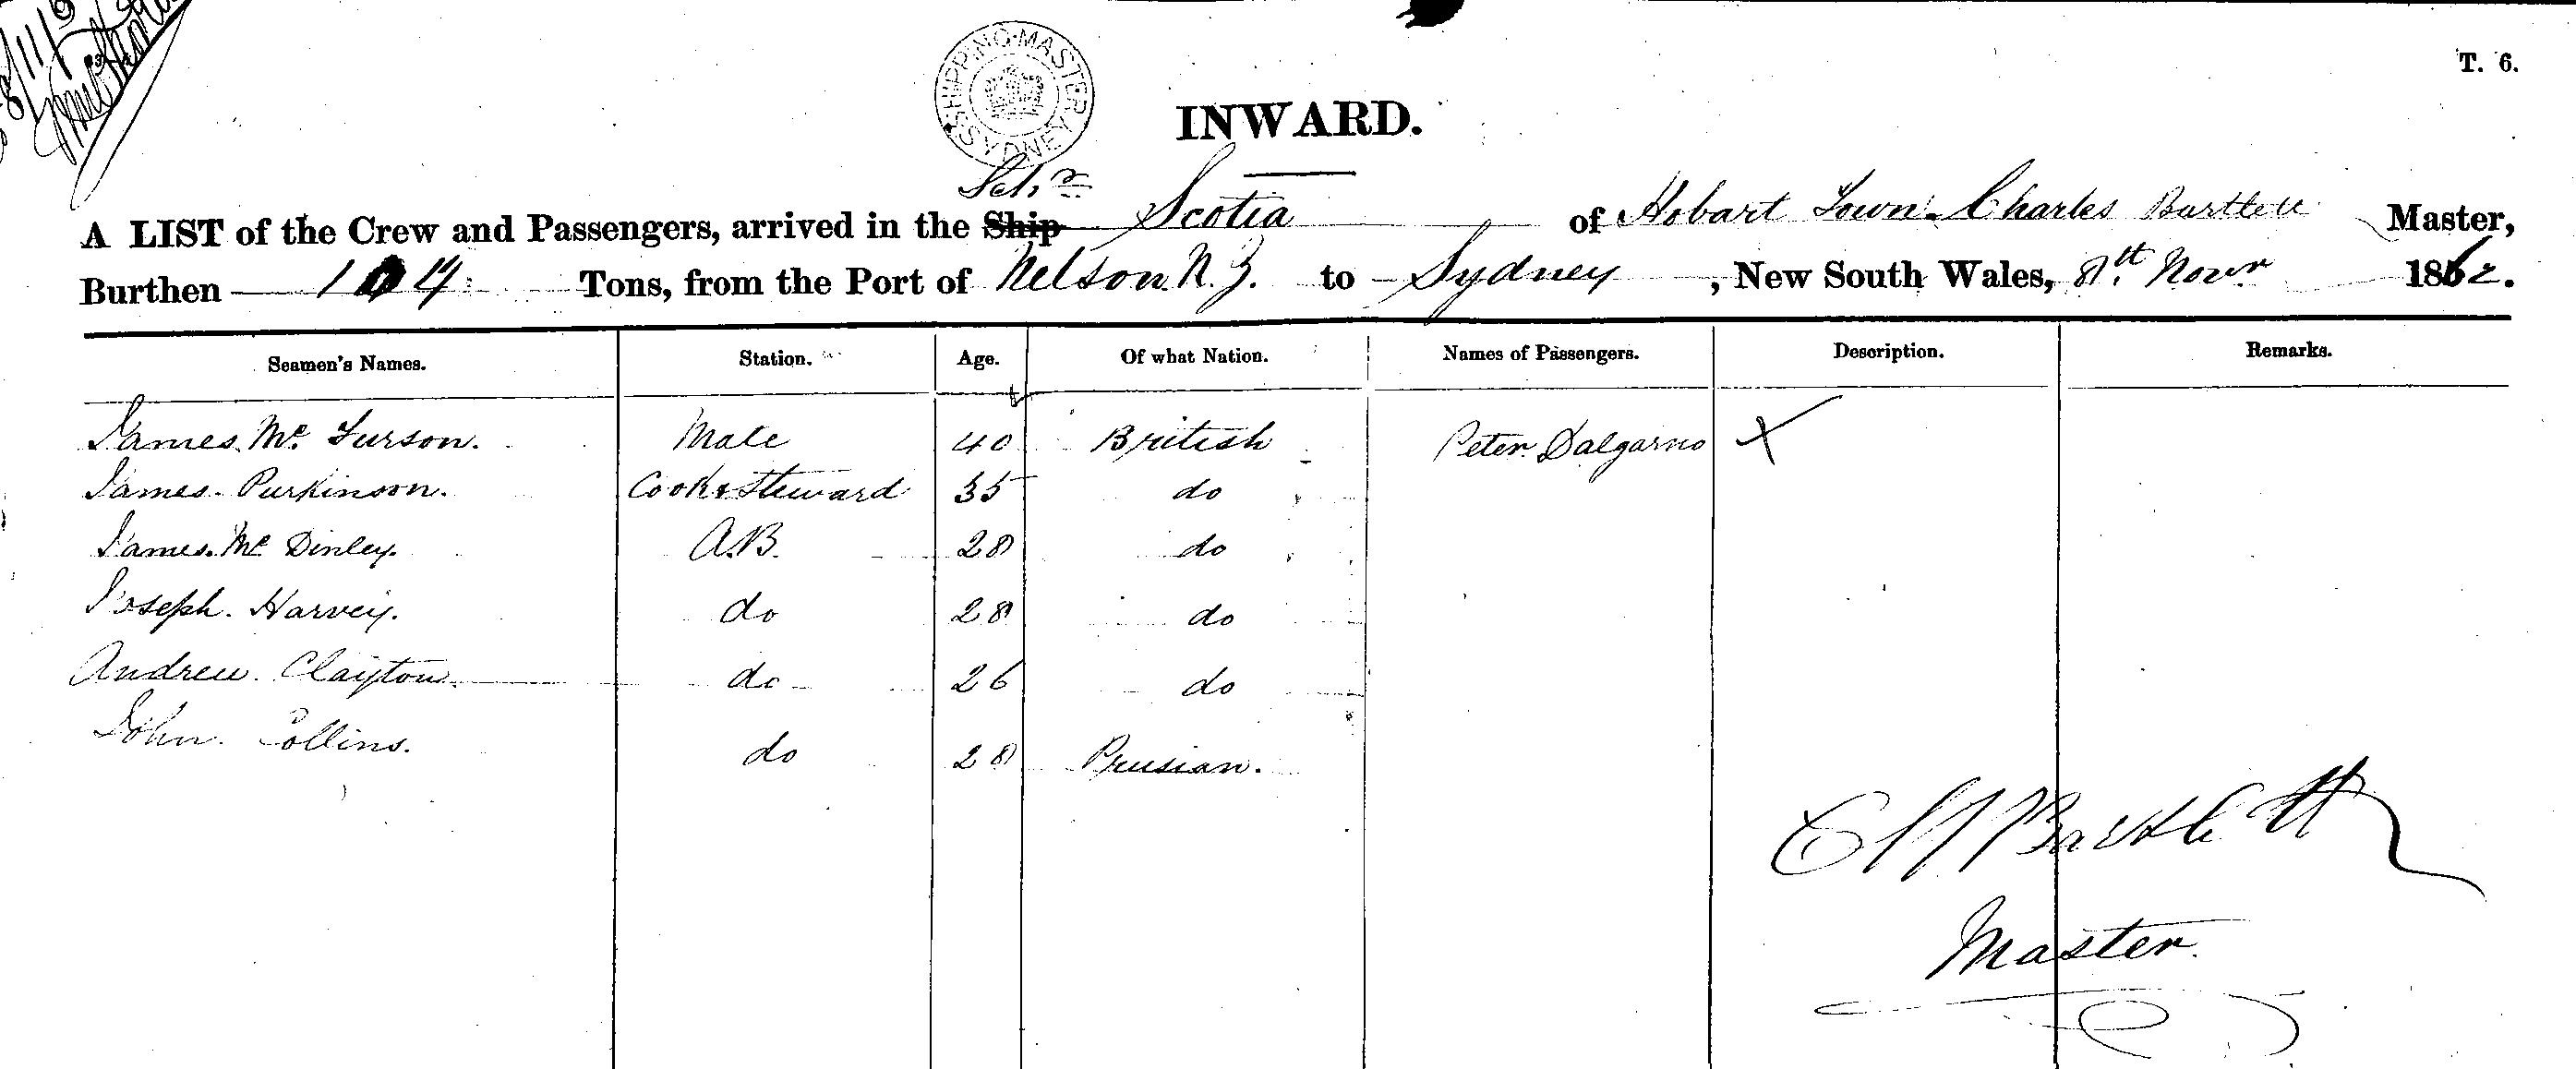 SHIPPING MASTER
SYDNEY
T. 6.
INWARD.
Schr
A LIST of the Crew and Passengers, arrived in the Ship Scotia of Hobart Town Charles Bartlett Master,
Burthen 104 Tons, from the Port of Nelson N.Z. to Sydney, New South Wales, 8th Novr 1862.
Seamen's Names. Station. Age. Of what Nation. Names of Passengers. Description. Remarks.
James Mc Furson. Mate 40 British Peter Dalgarno X
James Purkinson. Cook & Steward 35 do
James Mc Dinley. A.B. 28 do
Joseph Harvey. do 28 do
Andrew Clayton. do 26 do
John Collins. do 28 Prusian.
Bartlett
Master